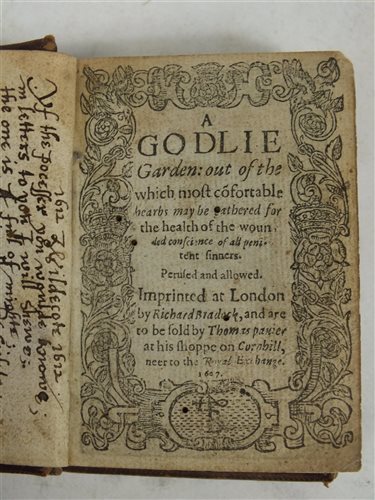 1612 H Wildelok 1612
If the possesser you woulde knowe,
in letters to you I will shewe.
the one is I full of might
A
GODLIE
Garden: out of the
which most cõfortable
hearbs may be gathered for
the health of the woun-
ded conscience of all peni-
tent sinners.
Perused and allowed.
Imprinted at London
by Richard Bradock, and are
to be sold by Thomas pauier
at his shoppe on Cornhill,
neer to the Royal Exchange.
1607.